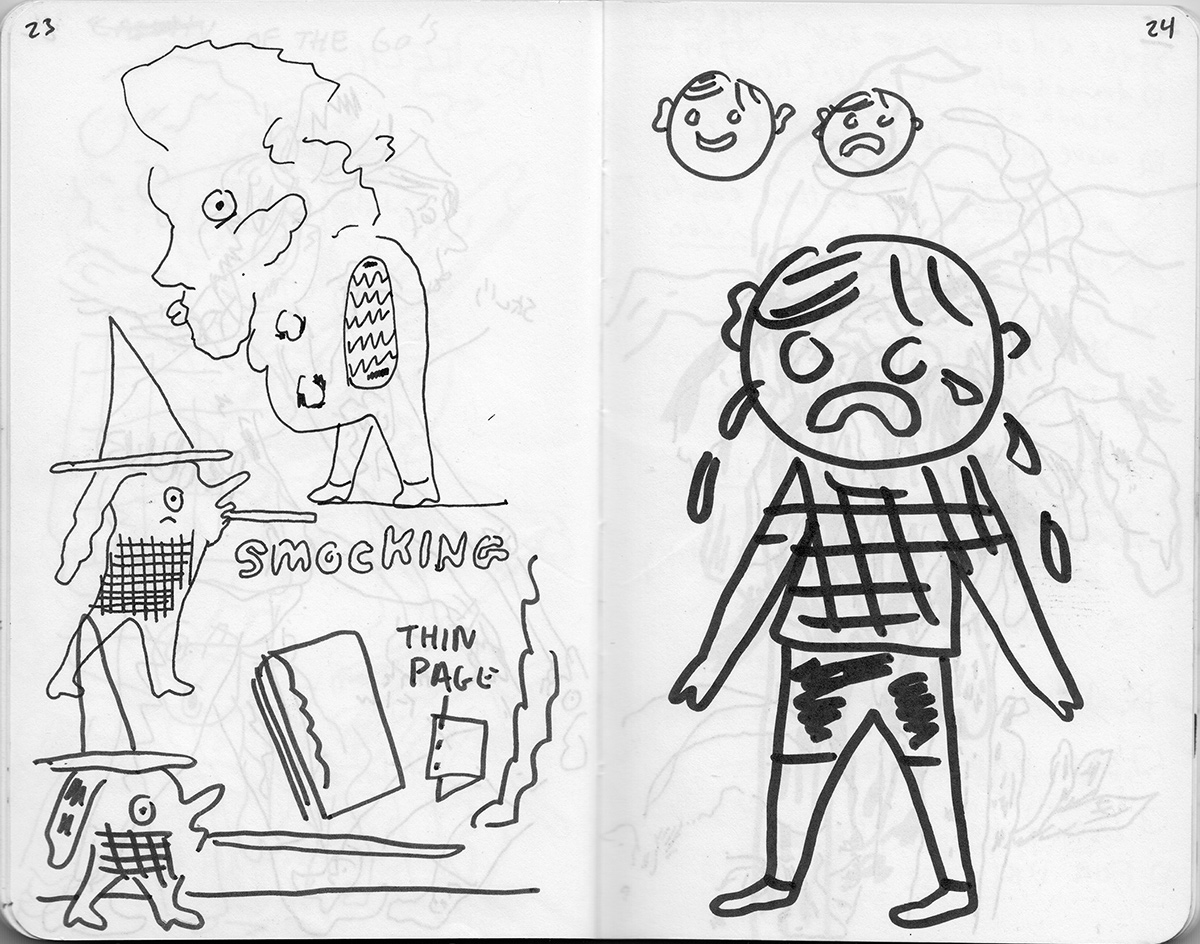 23
OF THE 60'S
SMOCKING
THIN
PAGE
24